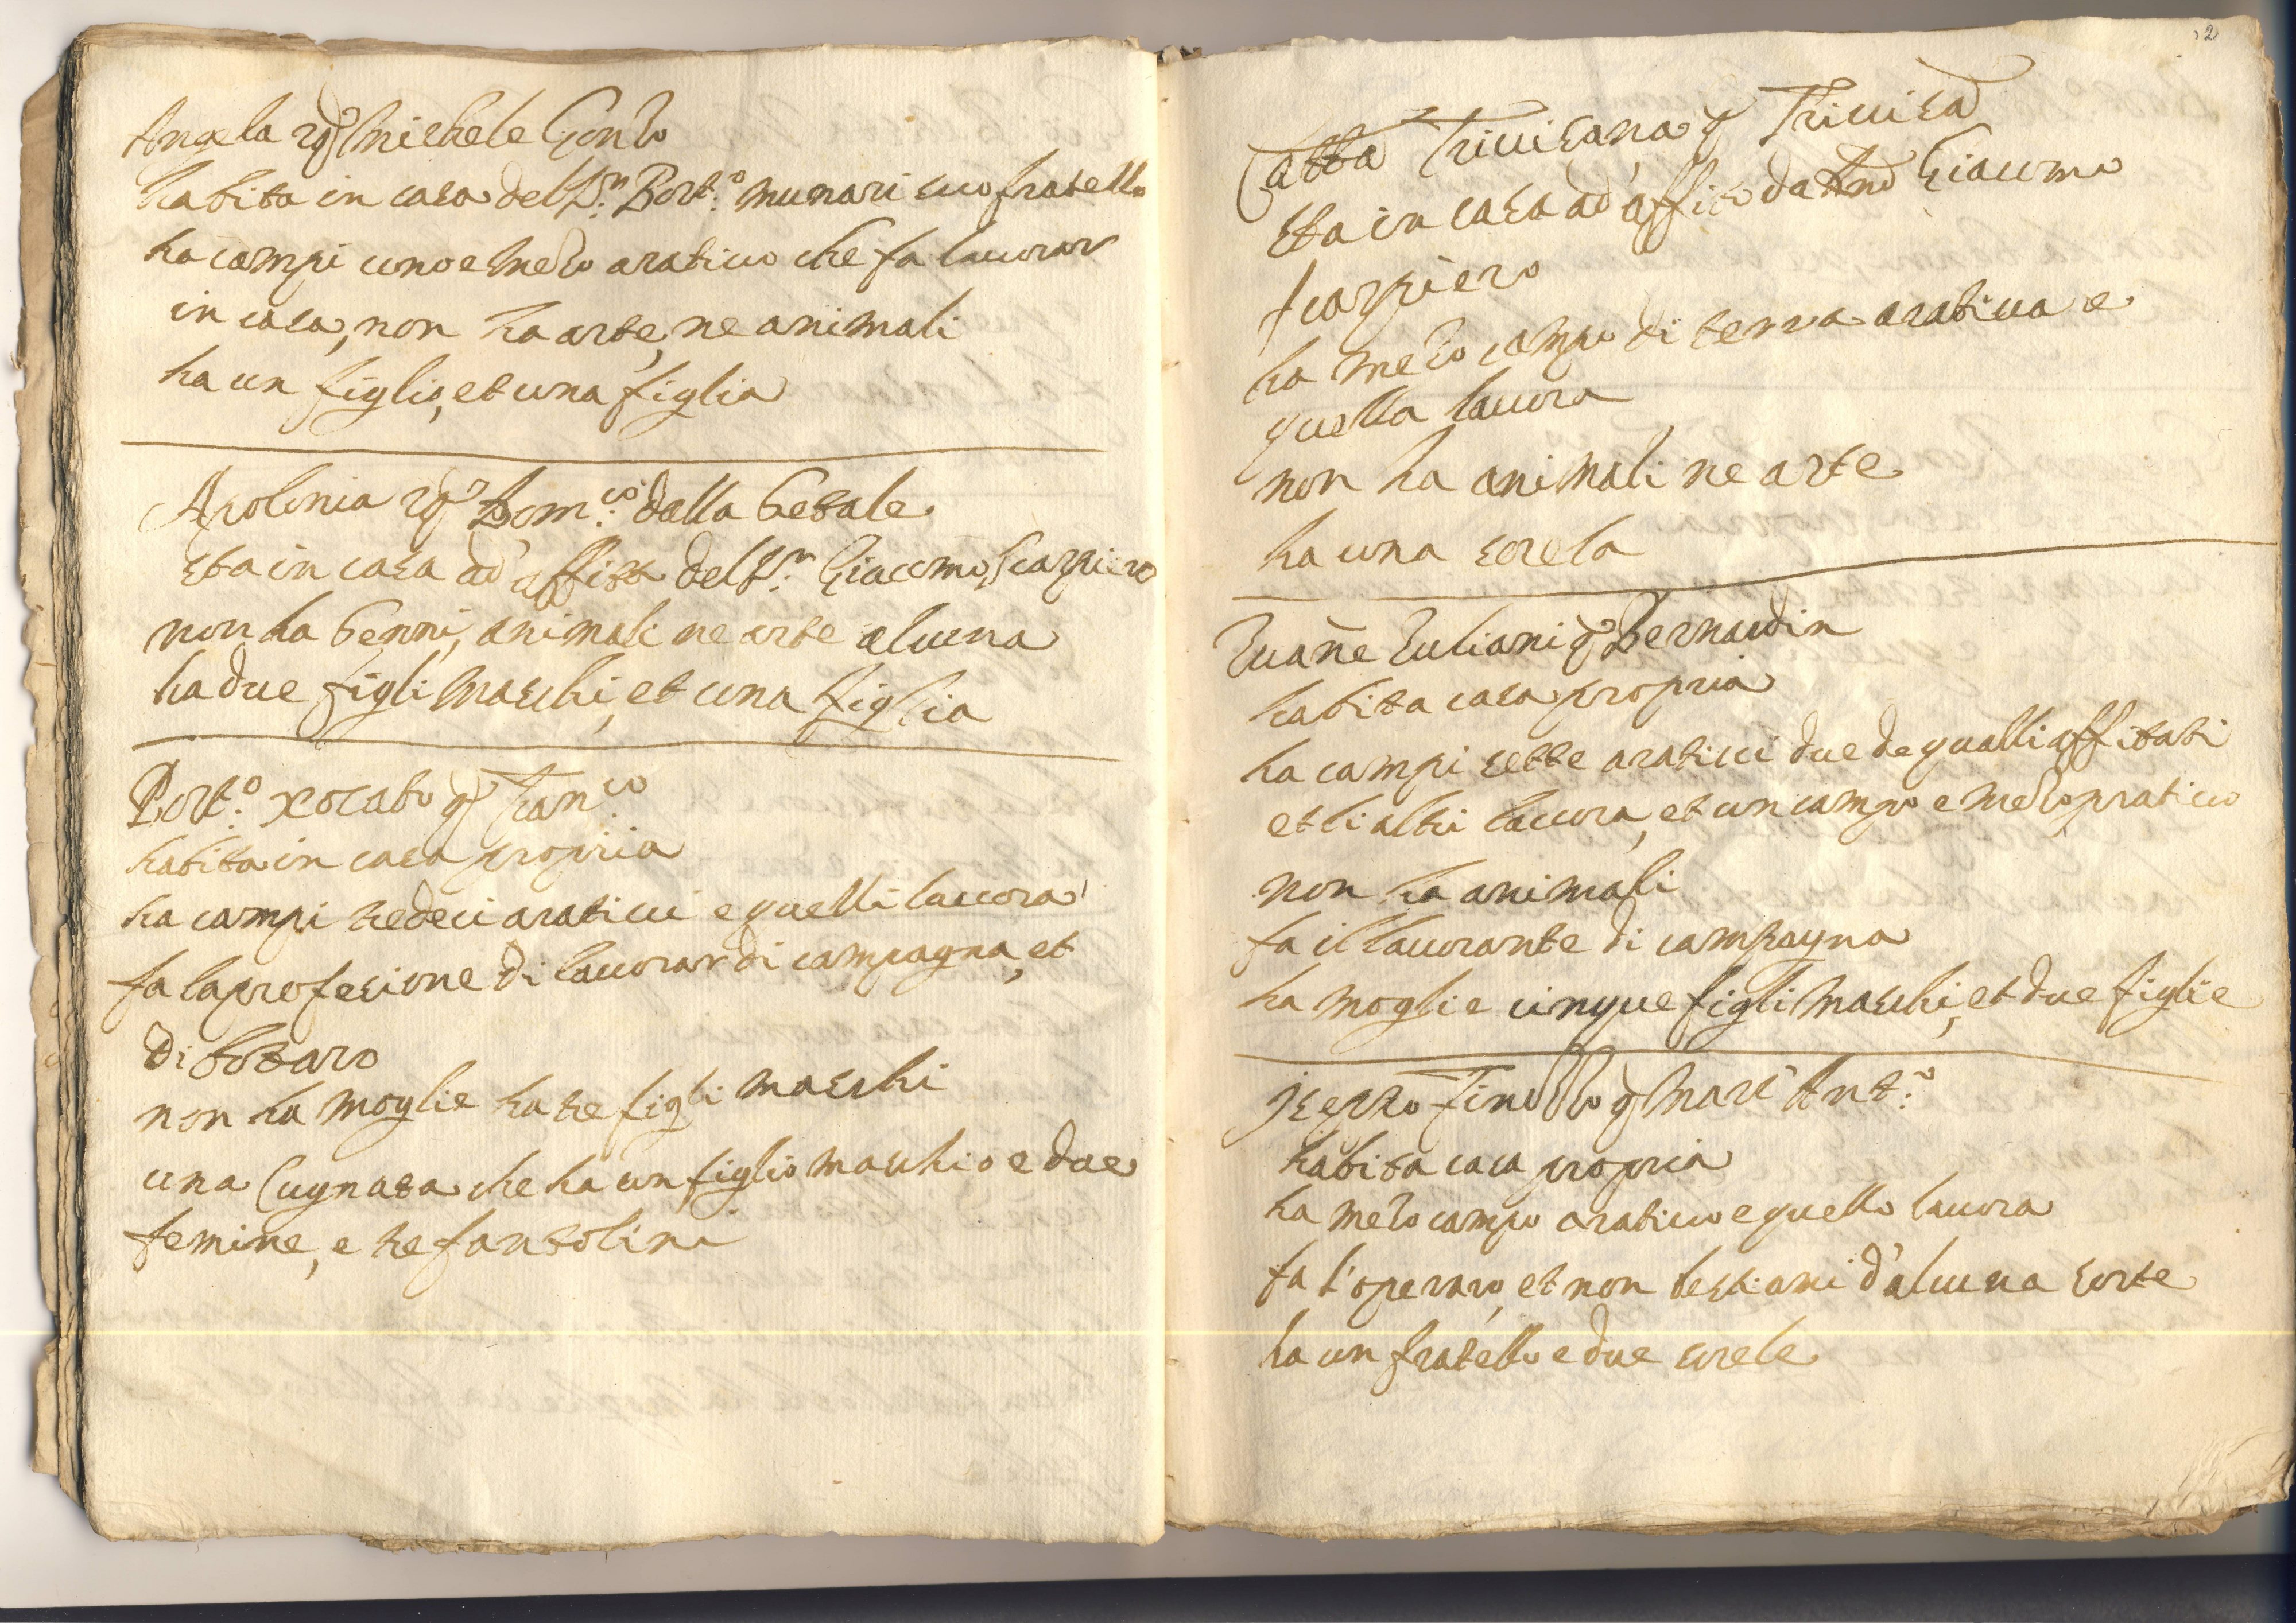 Angela rq Michele Gonzo
habita in casa del Sr. Bort.o Munari suo fratello
ha campi uno e mezo arativo che fa lavorar
in casa, non ha arte, ne animali
ha un figlio, et una figlia
Apolonia rq Dom.co dalla Betale
sta in casa ad affitto del Sr. Giacomo Scarpiero
non ha benni, animali ne arte alcuna
ha due figli maschi, et una figlia
Bort.o q Fran.co
habita in casa propria
ha campi tredeci arativi e quelli lavora
fa la profesione di lavorar di campagna, et
di bottaro
non ha moglie ha tre figli maschi
una Cugnata che ha un figlio maschio e due
femine, e tre fantolini
2
Catta Trivisana q Trivisa
sta in casa ad affito da Giacomo
Scarpiero
ha mezo campo di terra arativa e
quella lavora
non ha animali ne arte
ha una sorela
Zuane Zuliani q Bernardin
habita casa propria
ha campi sette arativi due de qualli affitati
et li altri lavora, et un campo e mezo prativo
non ha animali
fa il lavorante di campagna
ha moglie cinque figli maschi, et due figlie
Iseppo Finozzo q Marc Ant.o
habita casa propria
ha mezo campo arativo e quello lavora
fa l'operaro, et non bestiami d'alcuna sorte
ha un fratello e due sorele